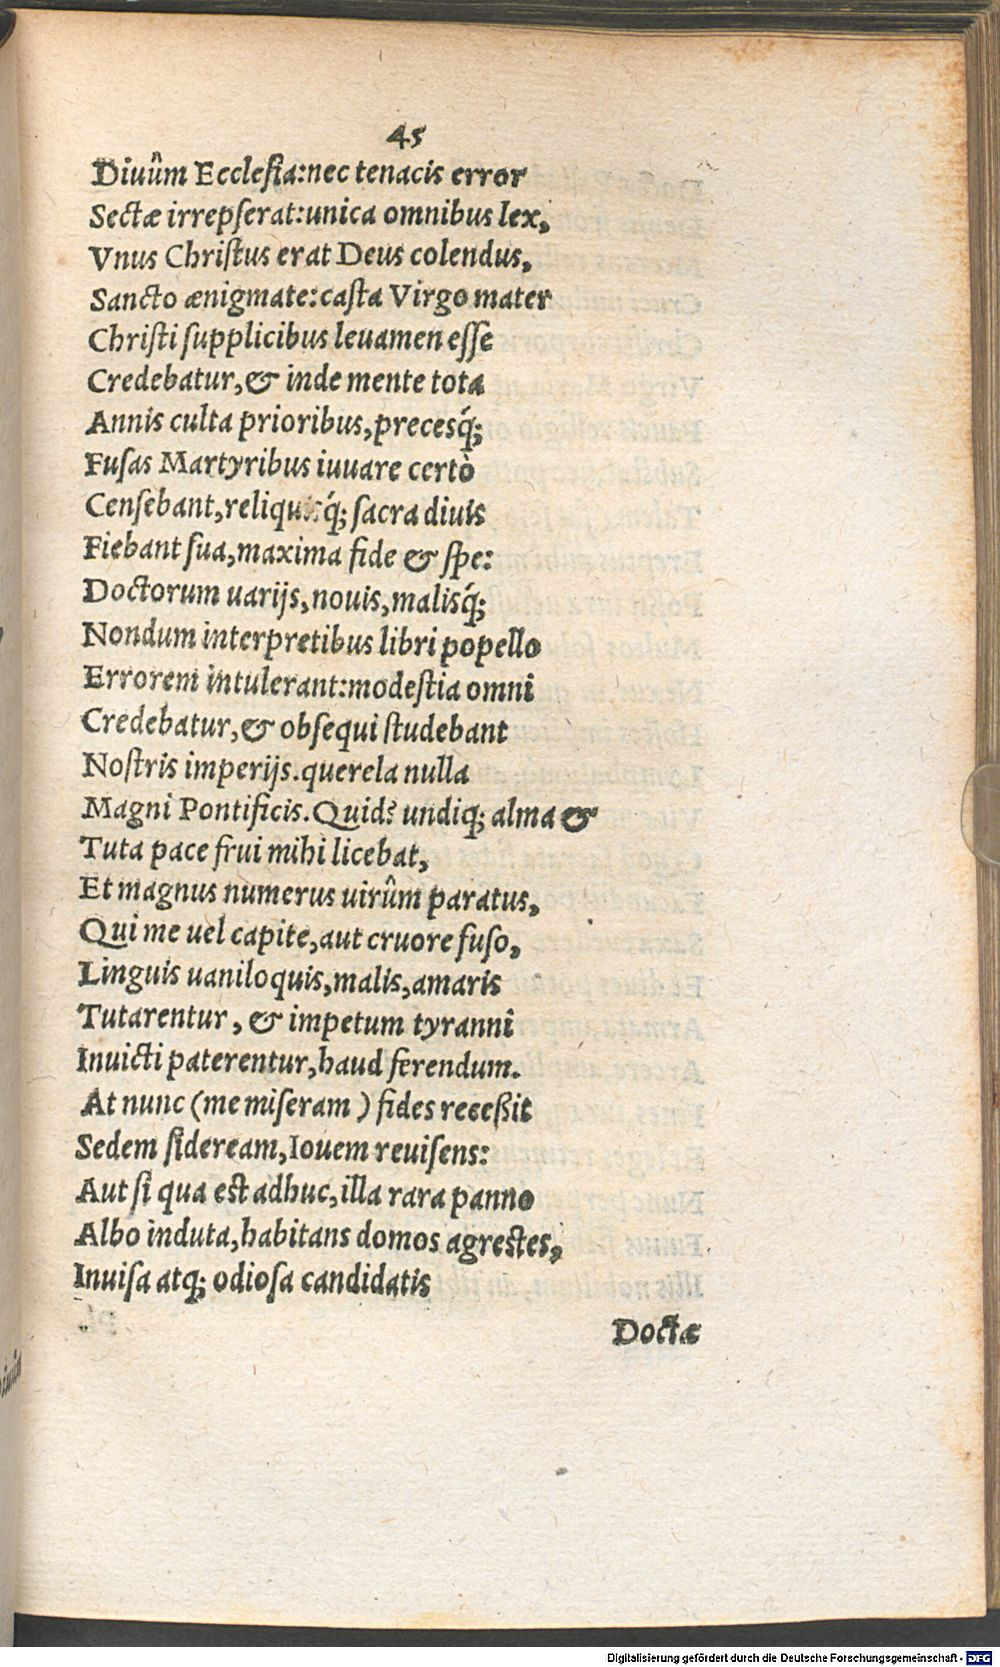 45
Diuûm Ecclesia: nec tenacis error
Sectæ irrepserat: unica omnibus lex,
Vnus Christus erat Deus colendus,
Sancto ænigmate: casta Virgo mater
Christi supplicibus leuamen esse
Credebatur, & inde mente tota
Annis culta prioribus, precesq́;
Fusas Martyribus iuuare certò
Censebant, reliquisq́; sacra diuis
Fiebant sua, maxima fide & spe:
Doctorum uarijs, nouis, malisq́;
Nondum interpretibus libri popello
Errorem intulerant: modestia omni
Credebatur, & obsequi studebant
Nostris imperijs. querela nulla
Magni Pontificis. Quid? undiq; alma &
Tuta pace frui mihi licebat,
Et magnus numerus uirûm paratus,
Qui me uel capite, aut cruore fuso,
Linguis uaniloquis, malis, amaris
Tutarentur, & impetum tyranni
Inuicti paterentur, haud ferendum.
At nunc (me miseram) fides receßit
Sedem sideream, Iouem reuisens:
Aut si qua est adhuc, illa rara panno
Albo induta, habitans domos agrestes,
Inuisa atq; odiosa candidatis
Doctæ
Digitalisierung gefördert durch die Deutsche Forschungsgemeinschaft - DFG